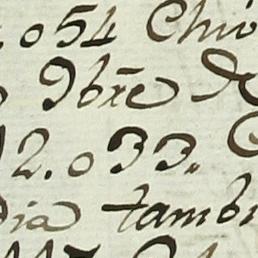 .054 Chi
9bre de
12.033.
dia tambi